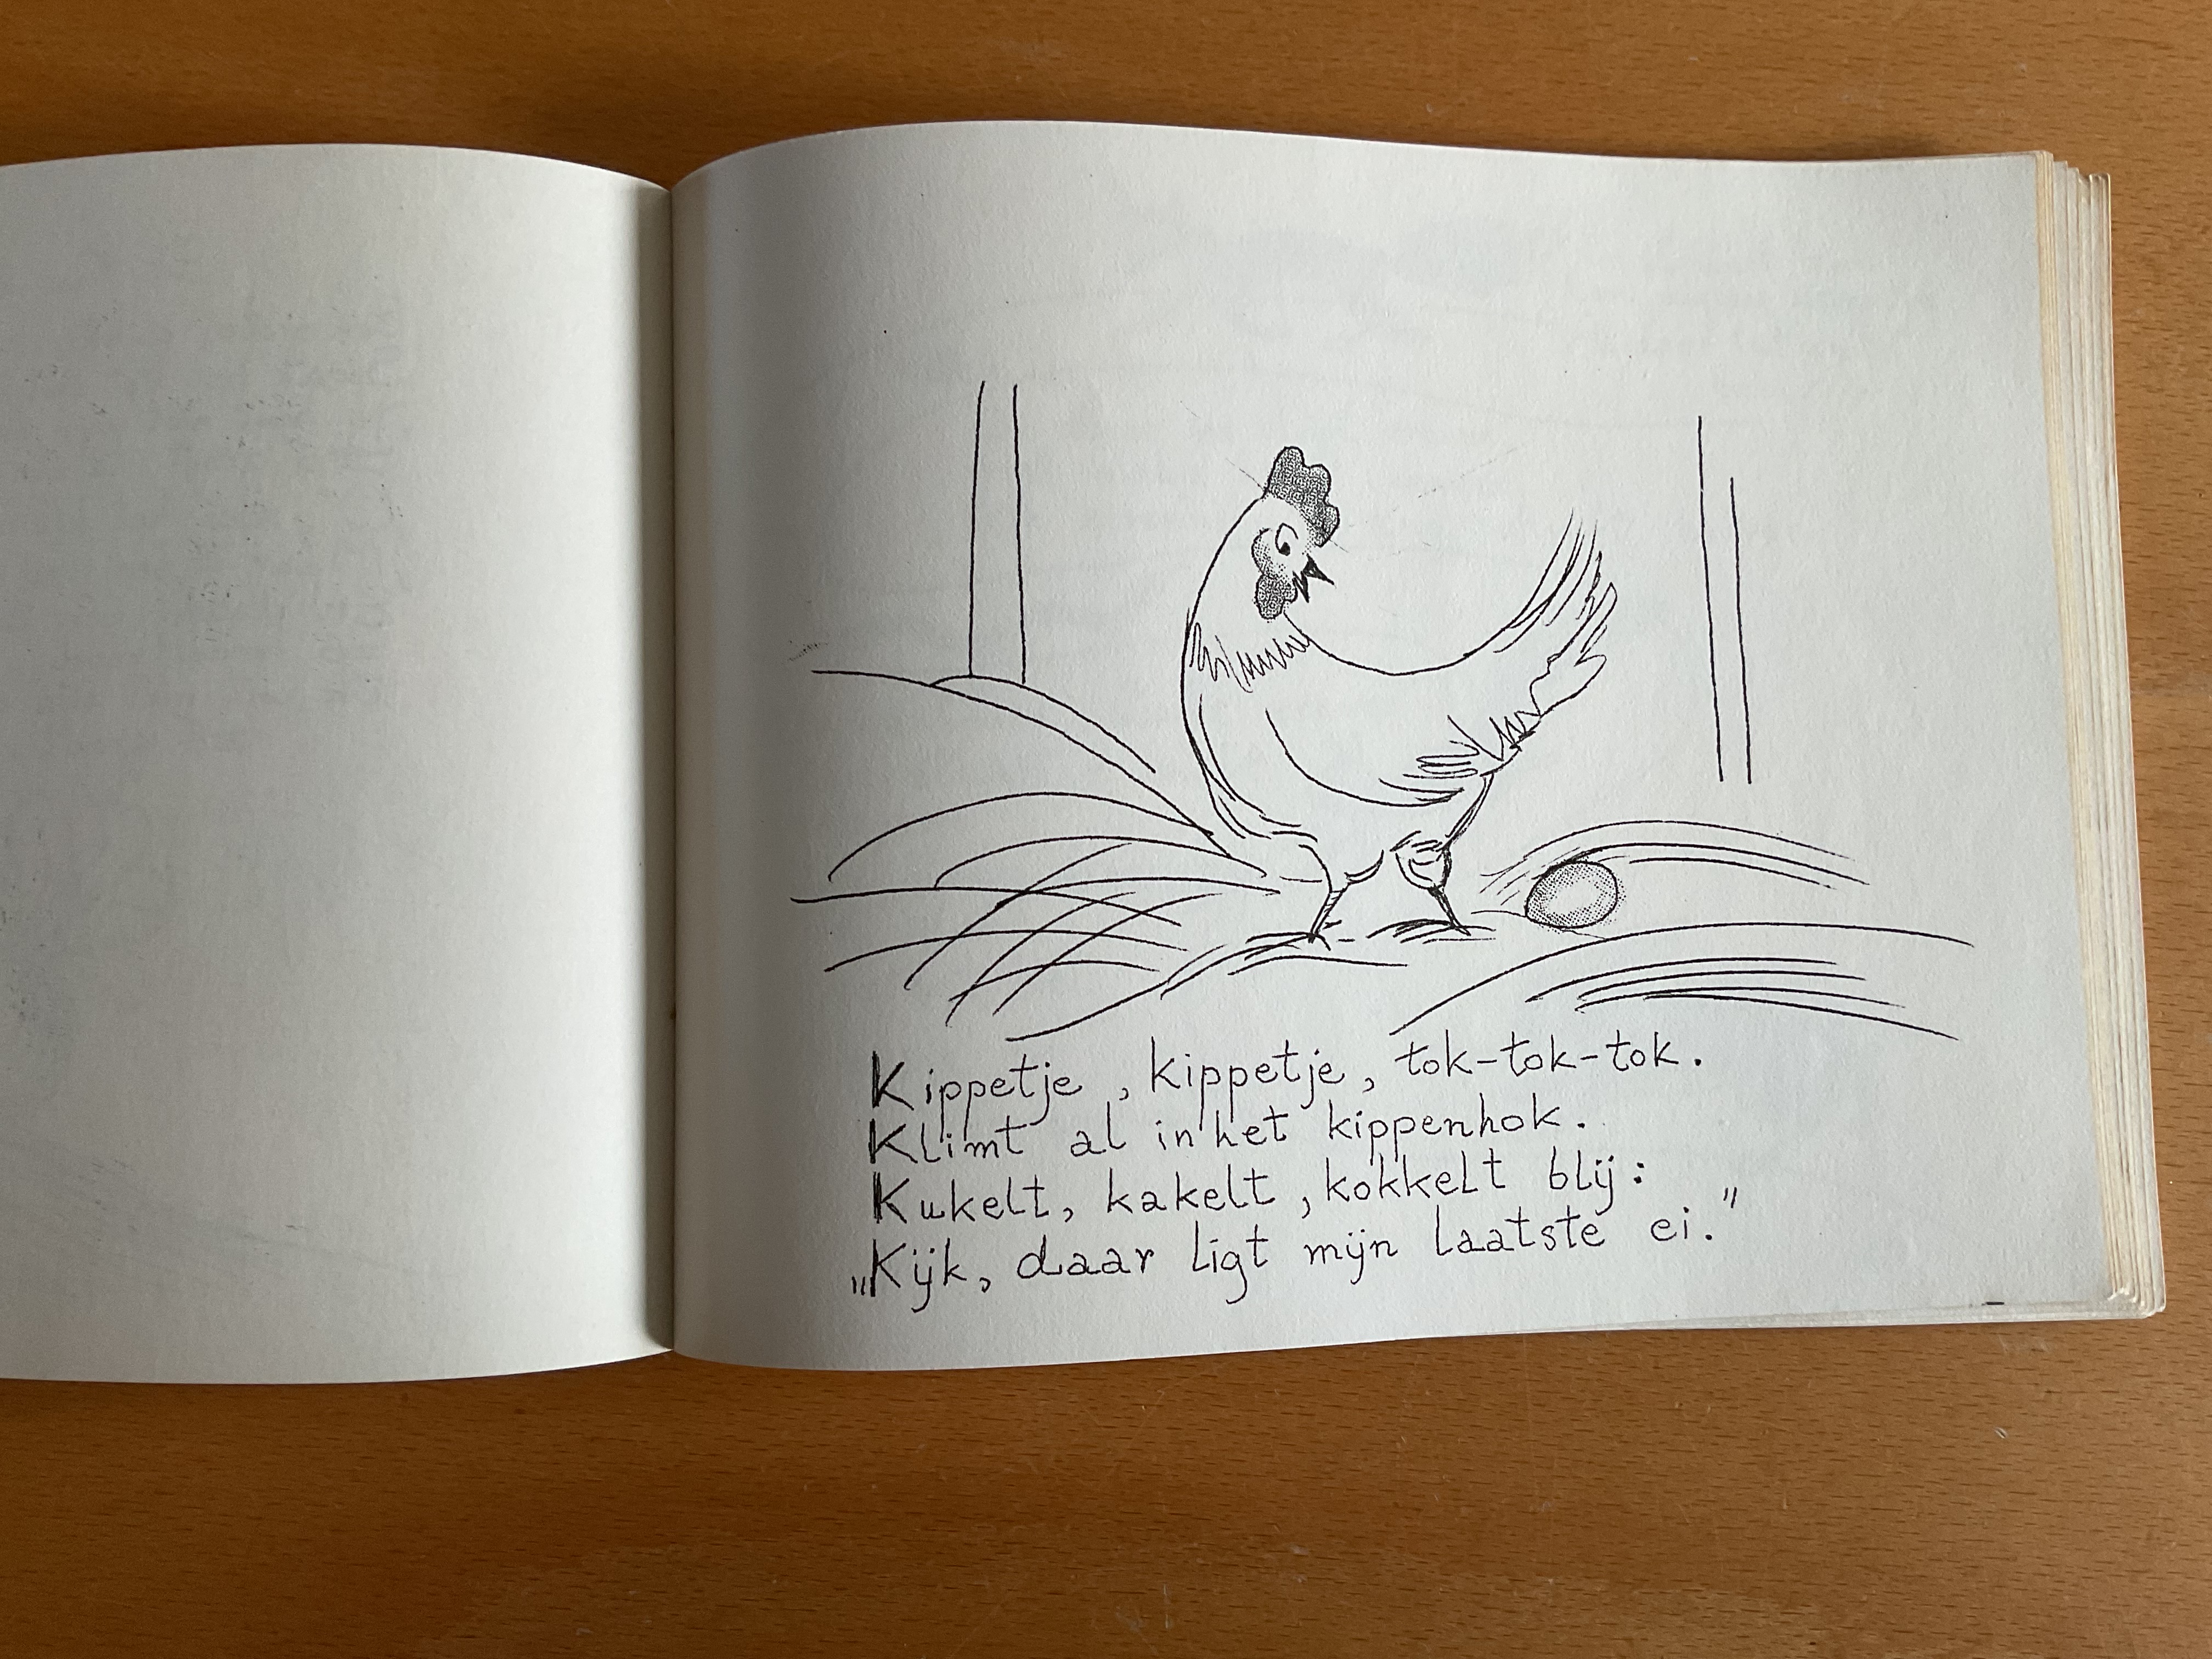 Kippetje, kippetje, tok-tok-tok.
Klimt al in het kippenhok.
Kukelt, kakelt, kokkelt blij:
„Kijk, daar ligt mijn laatste ei."